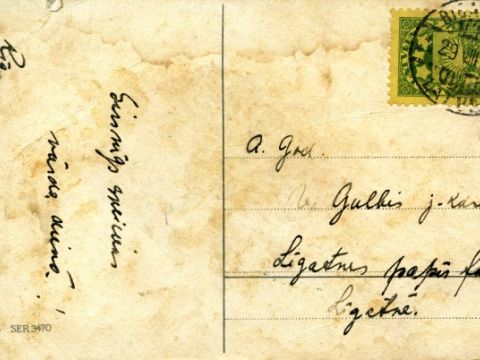 Sirsnīgs sveiciens
vārda dienā!
SER.3470
A. God.
V. Gulbis j. kan
Līgatnes papīr fa
Līgatnē.